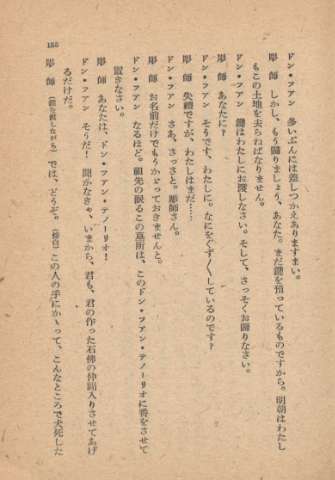 156
ドン・フアン　多いぶんには差しつかえありますまい。
彫　師　しかし、もう歸りましょう、あなた。まだ鍵を預っているものですから。明朝はわたし
もこの土地を去らねばなりません。
ドン・フアン　鍵はわたしにお渡しなさい。そして、さっそくお歸りなさい。
彫　師　あなたに？
ドン・フアン　そうです、わたしに。なにをぐず〱しているのです？
彫　師　失禮ですが、わたしはまだ……
ドン・フアン　さあ、さっさと。彫師さん。
彫　師　お名前だけでもうかゞっておきませんと。
ドン・フアン　なるほど。祖先の眠るこの墓所は、このドン・フアン・テノーリオに番をさせて
置きなさい。
彫　師　あなたは、ドン・フアン・テノーリオ！
ドン・フアン　そうだ！　聞かなきゃ、いまから、君も、君の作った石像の仲間入りさせてあげ
るだけだ。
彫　師　（鍵を渡しながら）では、どうぞ。（傍白）この人の手にかゝって、こんなところで犬死した